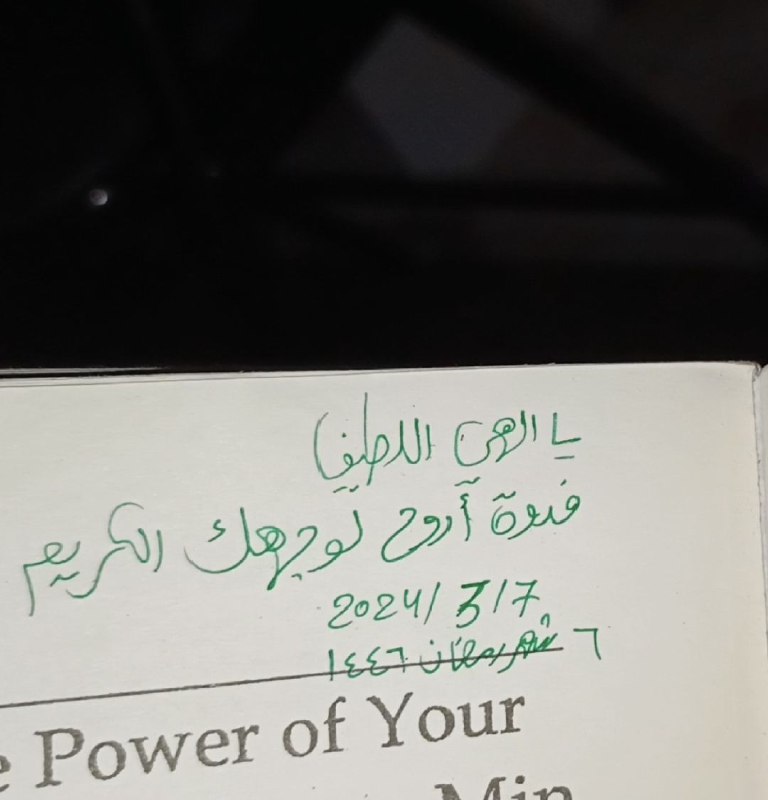 يا إلهي اللطيف
فدوة أروح لوجهك الكريم
2024/3/7
٦ شهر رمضان ١٤٤٦
Power of Your
Min